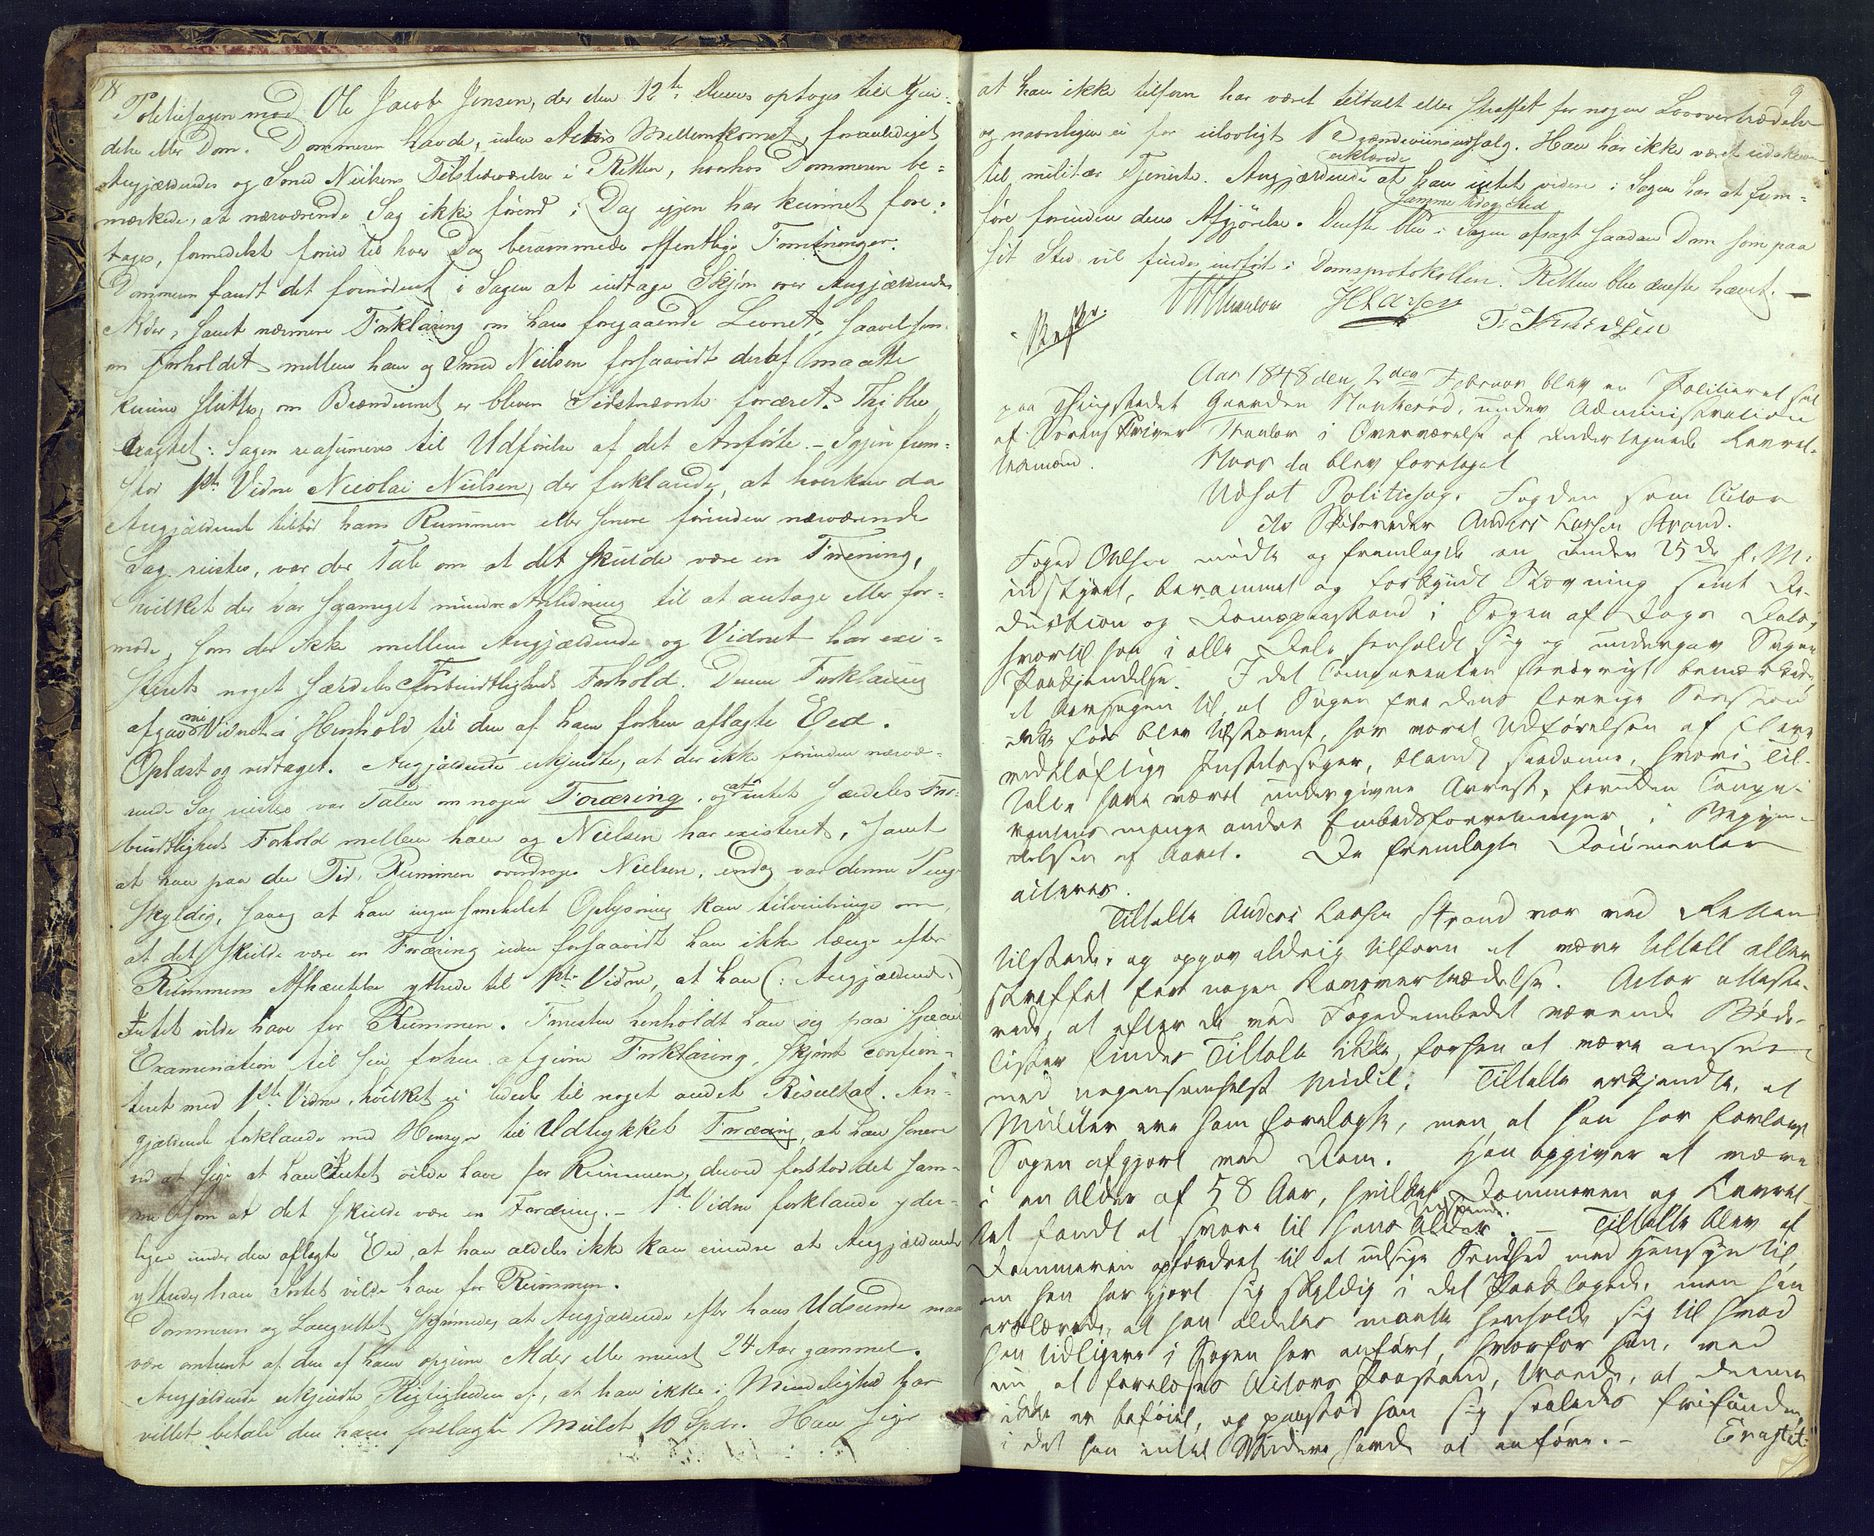 8
Politiesagen mod Ole Jacob Jensen, der den 12te dennes optoges til Kjen-
delse eller Dom. Dommeren havde, uden Actors Mellemkomst, foranlediget
Angjældendes og Smed Nielsens Tilstedeværelse i Retten, hvorhos Dommeren be-
mærkede, at nærværende Sag ikke førend i Dag igjen har kunnet fore-
tages, formedelst forud til hver Dag berammede offentlige Forretninger.
Dommeren fandt det fornødent i Sagen at indtage Skjøn over Angjældendes
Alder, samt nærmere Forklaring om hans foregaaende Levnet, saavelsom
om Forholdet mellem ham og Smed Nielsen forsaavidt deraf maatte
kunne sluttes, om Brændevinet er bleven Sidstnævnte foræret. Thi blev
eragtet: Sagen reasumeres til Udførelse af det Anførte. – Igjen frem-
stod 1ste Vidne Nicolai Nielsen, der forklarede, at hverken da
Angjældende tilbød ham Rummen eller senere førinden nærværende
Sag reistes, var der Tale om at det skulde være en Foræring,
hvilket der var saameget mindre Anledning til at antage eller for-
mode, som der ikke mellem Angjældende og Vidnet har exi-
steret noget særdeles Forbindtligheds Forhold. Denne Forklaring
afgav Vidnet i Henhold til den af ham forhen aflagte Eed.
Oplæst og vedtaget. Angjældende erkjendte, at der ikke førinden nærvæ-
rende Sag reistes var Talen om nogen Foræring, og at intet særdeles For-
bindtligheds Forhold mellem ham og Nielsen har existeret, samt
at han paa den Tid, Rummen overdroges Nielsen, endog var denne Penge
skyldig, saa at han ingensomhelst Oplysning kan tilveiebringe om,
at det skulde være en Foræring uden forsaavidt han ikke længe efter
Rummens Afhændelse yttrede til 1ste Vidne, at han (: Angjældende :)
Intet vilde have for Rummen. Forresten henholdt han sig paa speciel
Examination til sin forhen afgivne Forklaring, skjønt confron-
teret med 1ste Vidne, hvilket ei ledede til noget andet Resultat. An-
gjældende forklarede med Hensyn til Udtrykket Foræring, at han senere
ved at sige at han Intet vilde have for Rummen, derved forstod det sam-
me som at det skulde være en Foræring. – 1ste Vidne forklarede yder-
ligere under den aflagte Eed, at han aldeles ikke kan erindre at Angjældende
yttrede, han Intet vilde have for Rummen.
Dommeren og Laugrettet skjønnede, at Angjældende efter hans Udseende maa
være omtrent af den af ham opgivne Alder eller mindst 24 Aar gammel.
Angjældende erkjendte Rigtigheden af, at han ikke i Mindelighed har
villet betale den ham forelagte Mulct 10 Spdr. Han siger
9
at han ikke tilforn har været tiltalt eller straffet for nogen Lovovertrædelse
og navnligen ei for ulovligt Brændeviinsudsalg. Han har ikke været udskreven
til militær Tjeneste. Angjældende erklærede at han intet videre i Sagen har at frem-
føre forinden dens Afgjørelse. Derefter blev i Sagen afsagt saadan Dom som paa
sit Sted vil findes indført i Domsprotokollen. Retten blev derefter hævet. –
Munlov H Larsen
T. Knudsen
Aar 1848 den 2den Februar blev en Politieret sat
paa Thingstedet Gaarden Skutterød, under Administration
af Sorenskriver Munlov i Overværelse af undertegnede Laugret-
temænd. Hvor da blev foretaget
Udsat Politiesag. Fogden som Actor
ctr. Skibsreder Anders Larsen Strand.
Foged Ohlsen mødte og fremlagde en under 25de f. M.
udstædt, berammet og forkyndt Stevning samt De-
duction og Domspaastand i Sagen af Dags Dato,
hvortil han i alle Dele henholdt sig og undergav Sagen
Paakjendelse. I det Comparenten forøvrigt bemærkede,
at Aarsagen til, at Sagen fra dens forrige Session
ikke før blev tilstævnt, har været Udførelsen af flere
vidtløftige Justitssager, blandt saadanne, hvori Til-
talte have været undergivne Arrest, foruden Compa-
rentens mange andre Embedsforretninger i Begyn-
delsen af Aaret. De fremlagte Documenter
acteres.
Tiltalte Anders Larsen Strand var ved Retten
tilstede, og opgav aldrig tilforn at være tiltalt eller
straffet for nogen Lovovertrædelse. Actor atteste-
rede, at efter de ved Fogedembedet værende Bøde-
lister findes Tiltalte ikke, forhen at være anseet
med nogensomhelst Mulct. Tiltalte erkjendte, at
Mulcter ere ham forelagte, men at han har forlangt
Sagen afgjort ved Dom. Han opgiver at være
i en Alder af 58 Aar, hvilket Dommeren og Laugret-
tet fandt at svare til hans Udseende. – Tiltalte blev af
Dommeren opfordret til at udsige Sandhed med Hensyn til
om han har gjort sig skyldig i det Paaklagede, men han
erklærede, at han aldeles maatte henholde sig til hvad
han tidligere i Sagen har anført, hvorfor han, ved
nu at forelæses Actors Paastand, troede, at denne
ikke er beføiet, og paastod han sig saaledes frifunden,
i det han intet Videre havde at anføre. – Eragtet: